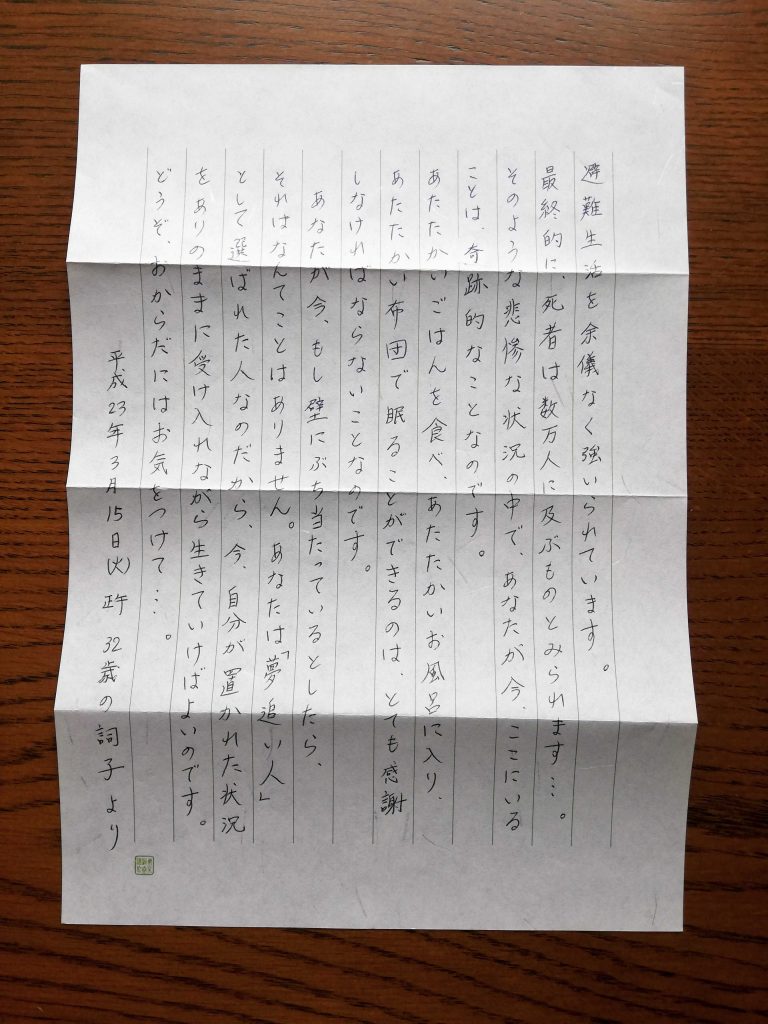 避難生活を余儀なく強いられています。
最終的に、死者は数万人に及ぶものとみられます…。
そのような悲惨な状況の中で、あなたが今、ここにいる
ことは、奇跡的なことなのです。
あたたかいごはんを食べ、あたたかいお風呂に入り、
あたたかい布団で眠ることができるのは、とても感謝
しなければならないことなのです。
あなたが今、もし壁にぶち当たっているとしたら、
それはなんてことはありません。あなたは「夢追い人」
として選ばれた人なのだから、今、自分が置かれた状況
をありのままに受け入れながら生きていけばよいのです。
どうぞ、おからだにはお気をつけて…。
平成23年3月15日(火) 正午 32歳の詞子より